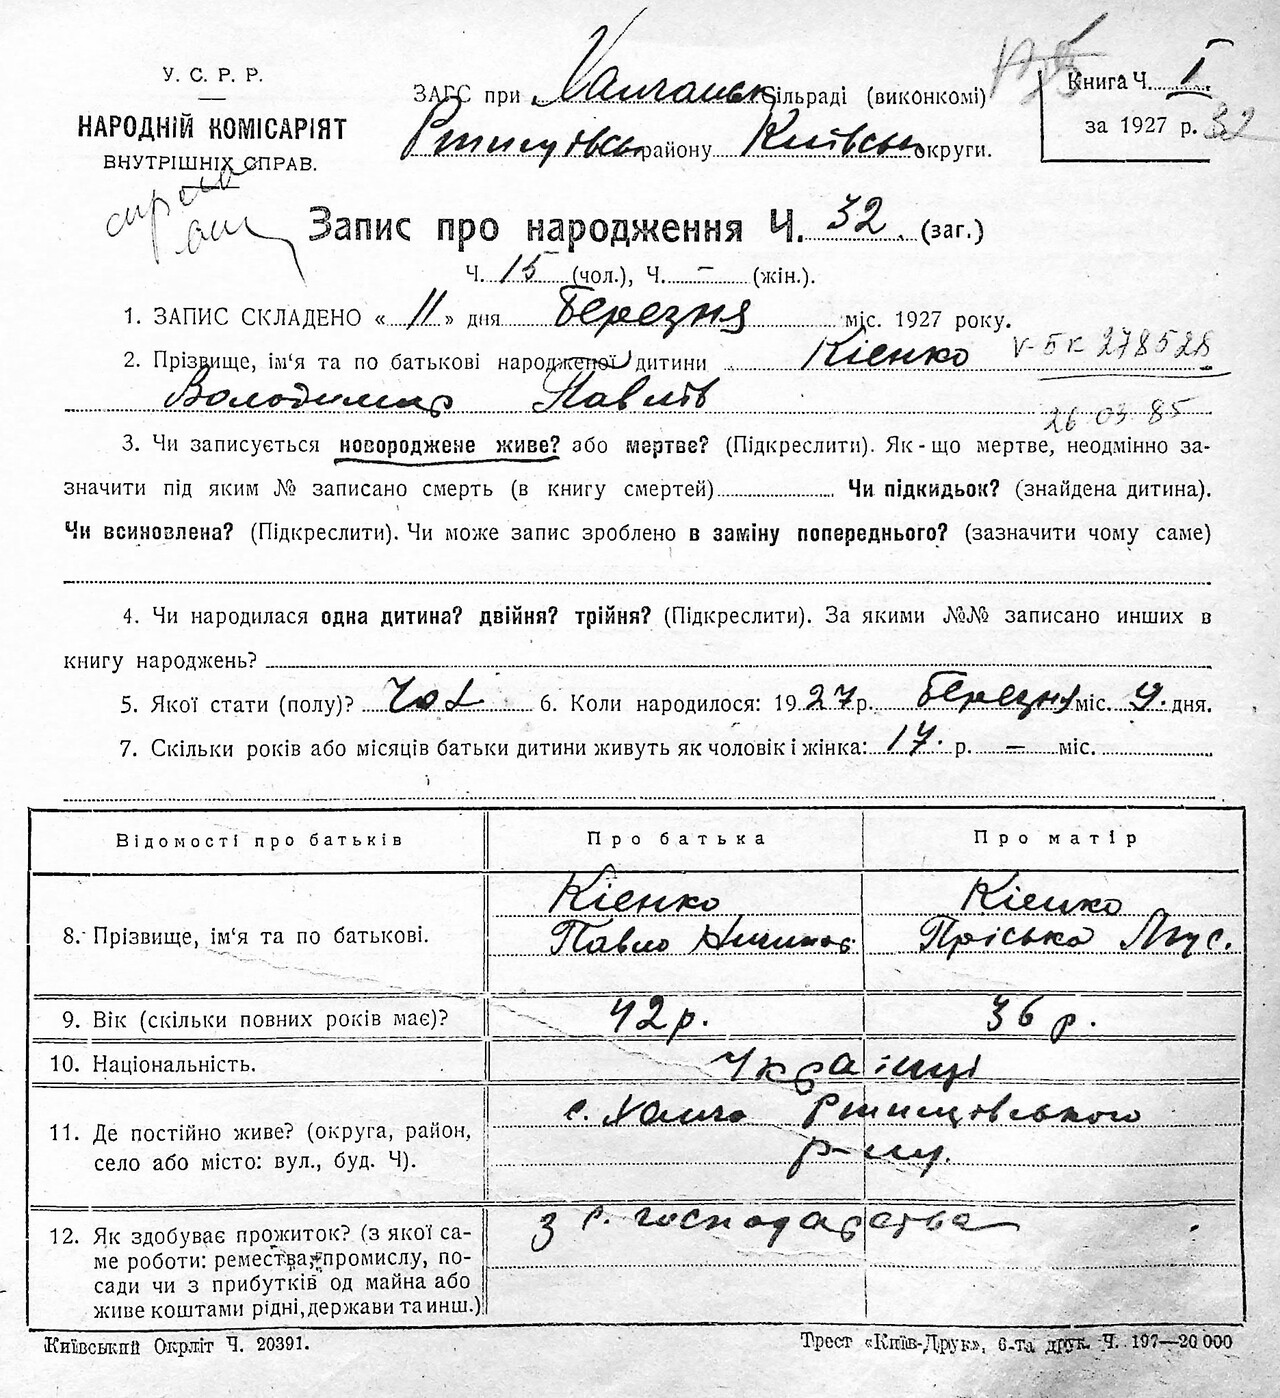 У. С. Р. Р.
НАРОДНІЙ КОМІСАРІЯТ
ВНУТРІШНІХ СПРАВ.
ЗАГС при Халчанськ сільраді (виконкомі)
Ржищівськ району Київськ округи.
Книга Ч. I
за 1927 р. 32
Запис про народження Ч. 32. (заг.)
Ч. 15 (чол.), Ч. – (жін.).
1. ЗАПИС СКЛАДЕНО « 11 » дня Березня міс. 1927 року.
2. Прізвище, ім‘я та по батькові народженої дитини Кієнко V-БК 278528
Володимир Павлів 26 03 85
3. Чи записується новороджене живе? або мертве? (Підкреслити). Як-що мертве, неодмінно за-
значити під яким № записано смерть (в книгу смертей) Чи підкидьок? (знайдена дитина).
Чи всиновлена? (Підкреслити). Чи може запис зроблено в заміну попереднього? (зазначити чому саме)
4. Чи народилася одна дитина? двійня? трійня? (Підкреслити). За якими №№ записано инших в
книгу народжень?
5. Якої стати (полу)? чол 6. Коли народилося: 1927 р. Березня міс. 9. дня.
7. Скільки років або місяців батьки дитини живуть як чоловік і жінка: 17. р. – міс.
Відомості про батьків Про батька Про матір
8. Прізвище, ім‘я та по батькові.
Кієнко
Павло
Кієнко
Пріська Мус.
9. Вік (скільки повних років має)? 42 р. 36 р.
10. Національність. Українці
11. Де постійно живе? (округа, район,
село або місто: вул., буд. Ч).
с. Халча Ржищовського
р-ну.
12. Як здобуває прожиток? (з якої са-
ме роботи: ремества, промислу, по-
сади чи з прибутків од майна або
живе коштами рідні, держави та инш.)
З с. господарства
Київський Окрліт Ч. 20391.
Трест «Київ-Друк», 6-та друк. Ч. 197—20 000